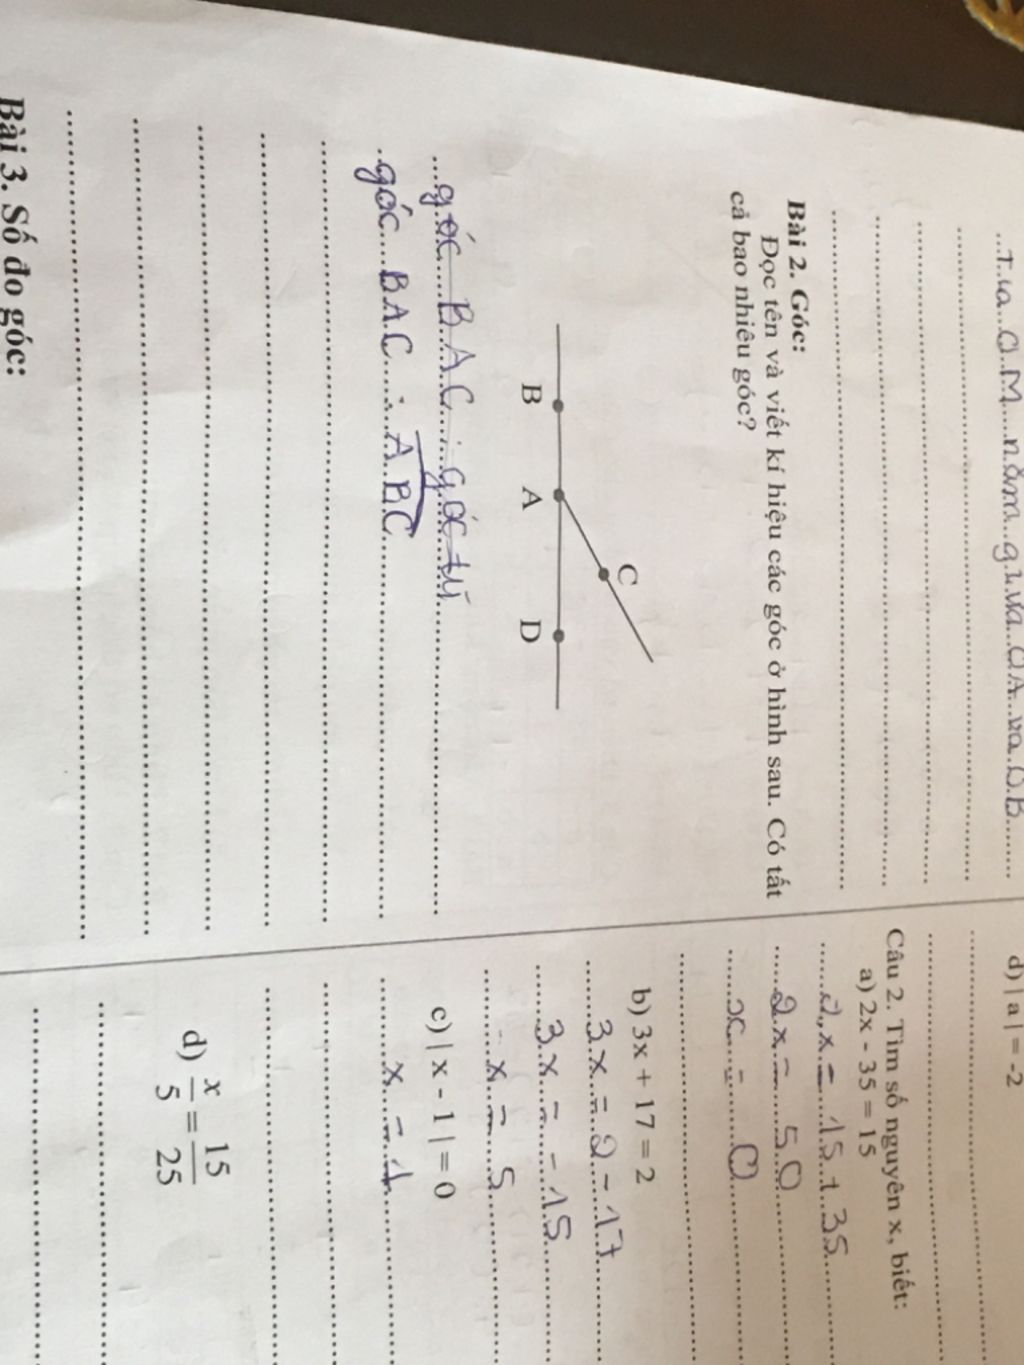 Tia OM nằm giữa OA và OB
Bài 2. Góc:
Đọc tên và viết kí hiệu các góc ở hình sau. Có tất
cả bao nhiêu góc?
C
B A D
góc BAC : góc tù
góc BAC : ABC
Bài 3. Số đo góc:
d) | a | = -2
Câu 2. Tìm số nguyên x, biết:
a) 2x - 35 = 15
2x = 15 + 35
2x = 50
x = 0
b) 3x + 17 = 2
3x = 2 - 17
3x = -15
x = 5
c) | x - 1 | = 0
x = 1
d) x/5 = 15/25